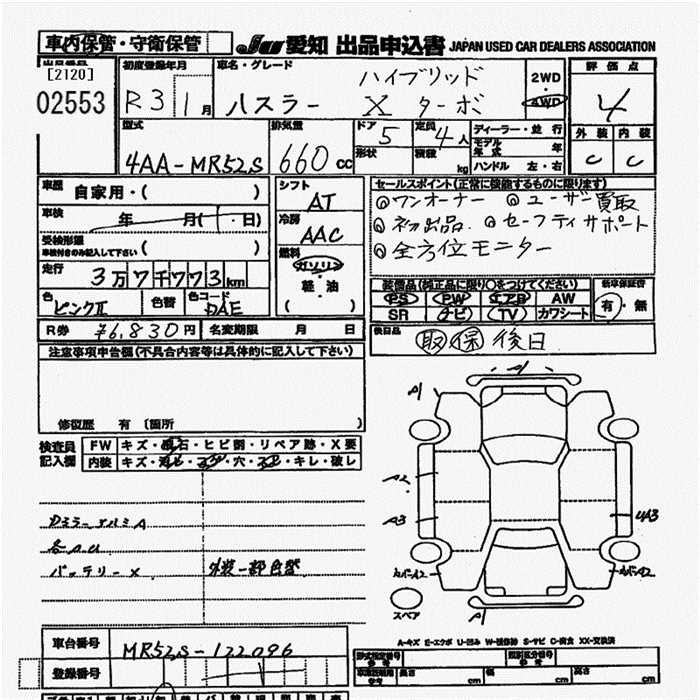 車内保管・守衛保管 JU 愛知 出品申込書 JAPAN USED CAR DEALERS ASSOCIATION
出品番号 初度登録年月 車名・グレード 評価点
[2120] ハイブリッド 2WD
02553 R3 1月 ハスラー X ターボ 4WD 4
型式 排気量 ドア 5 定員 4人 ディーラー・並行 外装 内装
4AA-MR52S 660 CC 形状 積載 kg モデル年式 年 C C
ハンドル 左・右
車歴 自家用・( ) シフト AT セールスポイント(正常に機能するものに限ります)
車検 年 月( 日) 冷房 AAC ◎ワンオーナー ◎ユーザー買取
受検形態 車検付きのみ記入して下さい ( ) 燃料 ガソリン ◎初出品 ◎セーフティサポート
走行 3万7千773km 軽・油 ◎全方位モニター
色 ピンクⅡ 色替 色コード ( ) 装備品(純正品に限り○をつけてください) 新車保証書
PS PW エアB AW 有・無
R券 ¥6,830円 名変期限 月 日 SR ナビ TV カワシート
注意事項申告欄(不具合内容等は具体的に記入して下さい) 後日品 取 保 後日
修復歴 有 〔箇所 〕
検査員記入欄 FW キズ・飛石・ヒビ割・リペア跡・X要
内装 キズ・汚れ・コゲ・穴・スレ・キレ・破し
A1 A1
A2
A3 4A3
カバーA2 カバーA2
バッテリーX 外装一部色替
スペア A1
A-キズ E-エクボ U-凹み W-補修跡 S-サビ C-腐食 XX-交換済
車台番号 MR52S-122096 型式指定番号 類別区分番号
登録番号 長さ cm 幅 cm 高さ cm